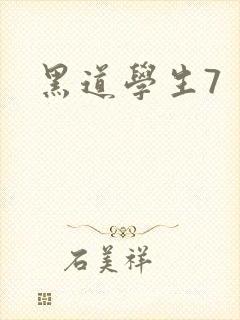 黑道學生7
石美祥